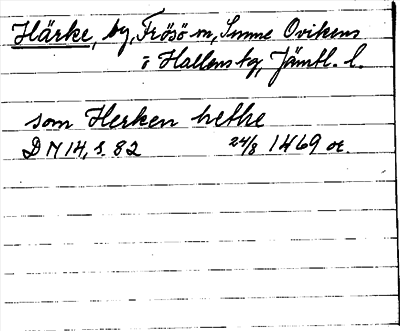 Härke, by, Frösö sn, Sunne Ovikens
i Hallens tg, Jämtl. l.
som Herken hethe
DN 14, s. 82 24/8 1469 or.